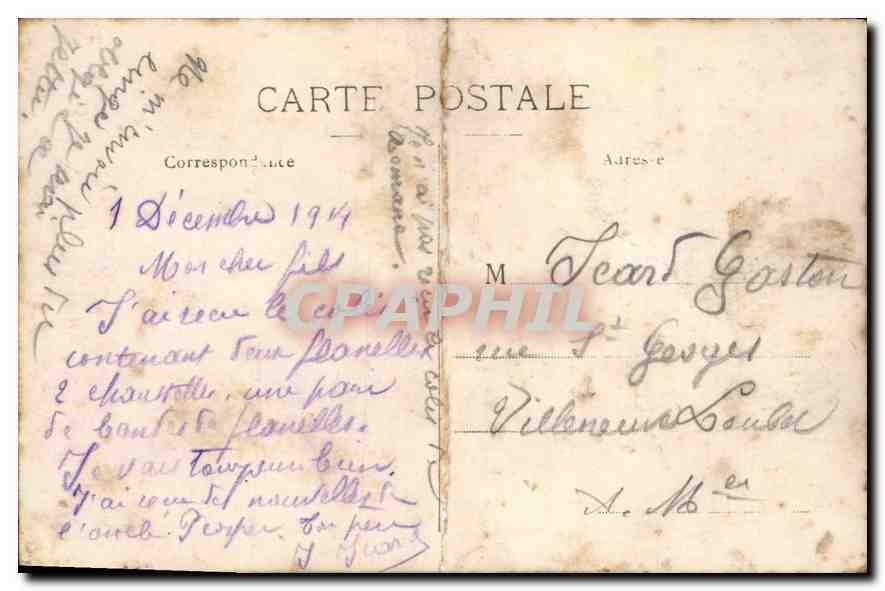 CARTE POSTALE
Correspondance
Adresse
1 Décembre 1914
Mon cher fils
J'ai recu le colis
contenant deux flanelles
2 chaussettes, une paire
de bandes de flanelles.
Je vais toujours bien.
J'ai recu des nouvelles de
l'oncle Prosper. Ton père
J Icard
Ne m'envoie plus de
linge
je
J'en ai pas recu le colis de
Romana.
M Icard Gaston
rue St Georges
Villeneuve Loubet
A. Mes
CPAPHIL